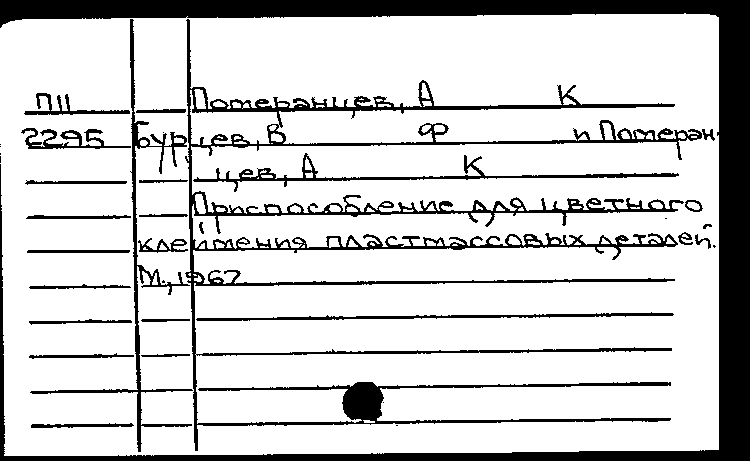 П11 Померанцев, А К
2295 Бурцев, В Ф и Померан-
цев, А К
Приспособление для цветного
клеймения пластмассовых деталей.
М., 1967